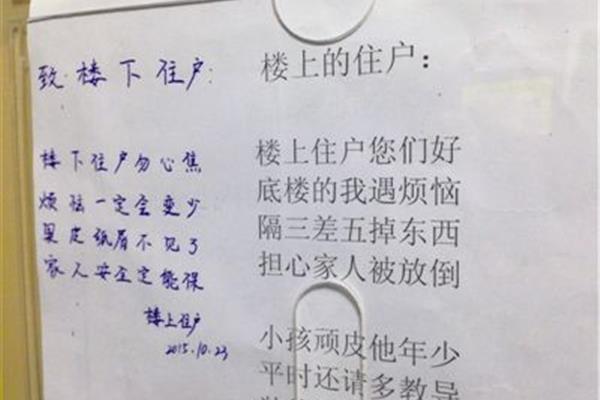 致楼下住户:
楼下住户勿心焦
烦恼一定会变少
果皮纸屑不见了
家人安全定能保
楼上住户
2015.10.23
楼上的住户:
楼上住户您们好
底楼的我遇烦恼
隔三差五掉东西
担心家人被放倒
小孩顽皮他年少
平时还请多教导